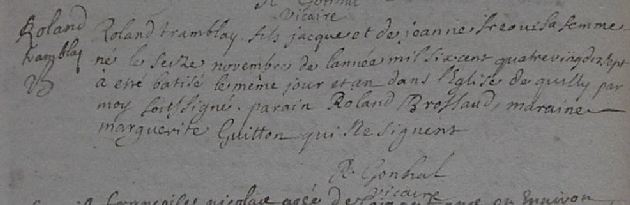 vicaire
Roland
tramblay
Roland tramblay fils jacque et de jeanne sa femme
né le seize novembre de lannée mil sixcent quatrevingdixsept
à eté batisé le même jour et an dans leglise de quilly par
moy soussigné. parain Roland Brossaud, maraine
marguerite Guitton qui ne signent
R Gonhal
vicaire